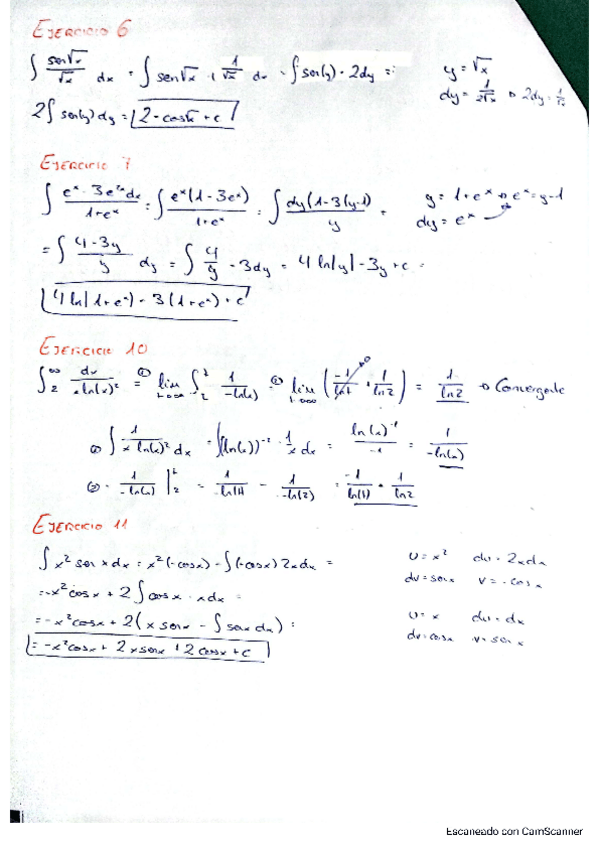 EJERCICIO 6
∫ sen√x/√x dx = ∫ sen√x · 1/√x dx = ∫ sen(y) · 2dy =
y = √x
dy = 1/2√x → 2dy = 1/√x
2∫ sen(y) dy = 2 · -cos√x + c
EJERCICIO 7
∫ e^x - 3e^2x dx / 1+e^x = ∫ e^x(1-3e^x) / 1+e^x = ∫ dy(1-3(y-1)) / y =
y = 1+e^x → e^x = y-1
dy = e^x
= ∫ 4-3y / y dy = ∫ 4/y - 3dy = 4 ln|y| - 3y + c =
4 ln|1+e^x| - 3(1+e^x) + c
EJERCICIO 10
∫_2^∞ dx / x ln(x)^2 = ① lim ∫ 1/-ln(x) = ② lim (-1/ln t + 1/ln 2) = 1/ln2 → Convergente
① ∫ 1 / x ln(x)^2 dx = ∫(ln(x))^-2 · 1/x dx = ln(x)^-1 / -1 = 1/-ln(x)
② · 1/-ln(x) |_2^t = 1/-ln(t) - 1/-ln(2) = -1/ln(t) + 1/ln2
EJERCICIO 11
∫ x^2 sen x dx = x^2(-cosx) - ∫(-cosx) 2x dx =
u = x^2 du = 2x dx
dv = senx v = -cosx
= -x^2 cosx + 2 ∫ cosx · x dx =
u = x du = dx
dv = cosx v = senx
= -x^2 cosx + 2(x senx - ∫ senx dx) =
= -x^2 cosx + 2x senx + 2cosx + c
Escaneado con CamScanner